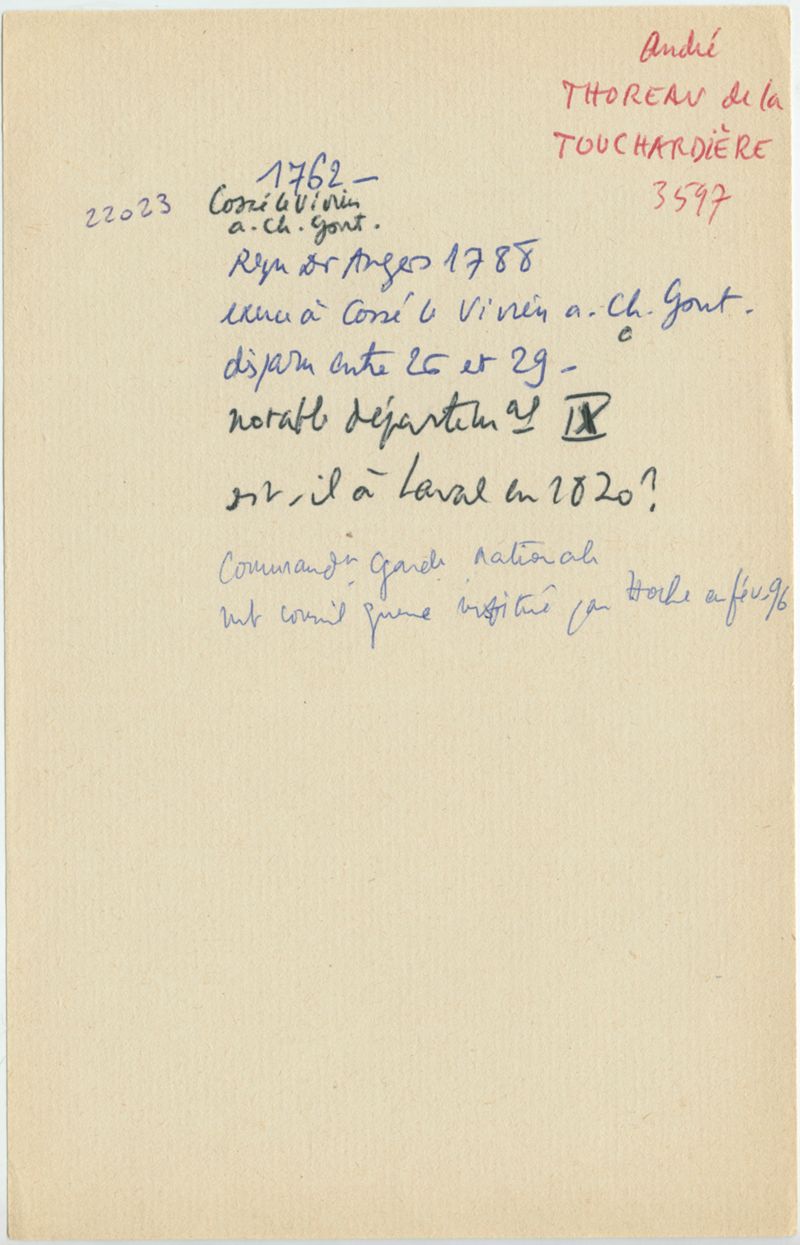 André
THOREAU de la
TOUCHARDIÈRE
3597
1762 –
22023 Cossé le Vivien
a. Ch. Gont.
Reçu Dr Angers 1788
exerce à Cossé le Vivien a. Ch. Gont.
disparu entre 26 et 29 –
notable départem al IX
est-il à Laval en 1820?
Command nt Garde nationale
conseil guerre institué par Hoche en fév. 96